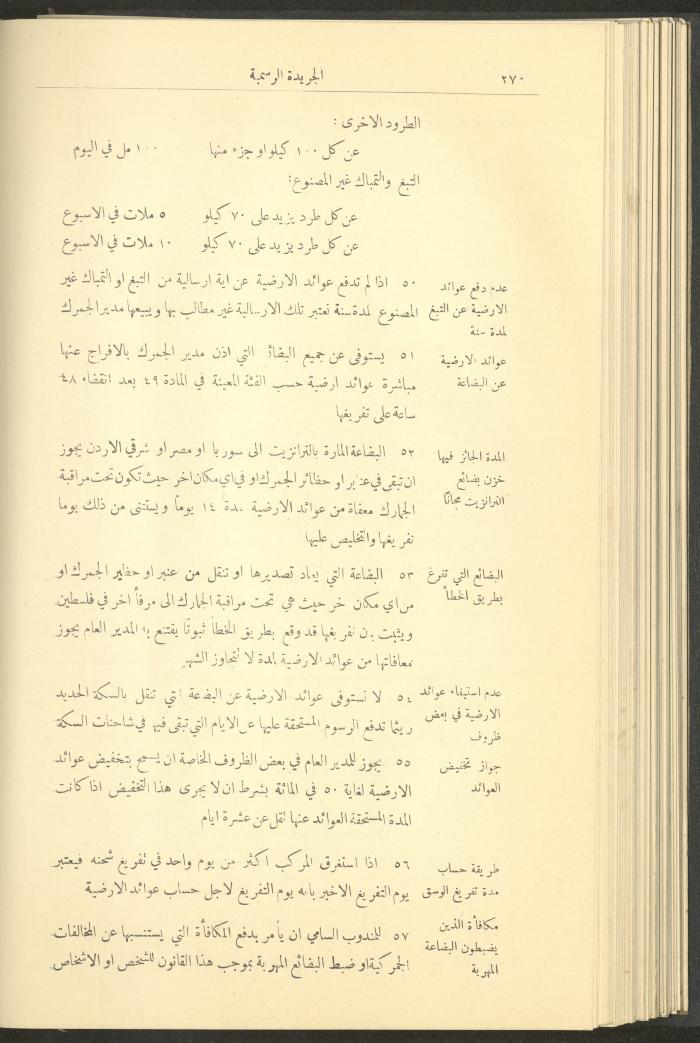 ٢٧٠
الجريدة الرسمية
الطرود الاخرى :
عن كل ١٠٠ كيلو او جزء منها ١٠٠ مل في اليوم
التبغ والتمباك غير المصنوع :
عن كل طرد يزيد على ٧٠ كيلو ٥ ملات في الاسبوع
عن كل طرد يزيد على ٧٠ كيلو ١٠ ملات في الاسبوع
عدم دفع عوائد
الارضية عن التبغ
لمدة سنة
٥٠ اذا لم تدفع عوائد الارضية عن اية ارسالية من التبغ او التمباك غير
المصنوع لمدة سنة تعتبر تلك الارسالية غير مطالب بها ويبيعها مدير الجمرك
عوائد الارضية
عن البضاعة
٥١ يستوفى عن جميع البضائع التي اذن مدير الجمرك بالافراج عنها
مباشرة عوائد ارضية حسب الفئة المعينة في المادة ٤٩ بعد انقضاء ٤٨
ساعة على تفريغها
المدة الجائز فيها
خزن بضائع
الترانزيت مجانًا
٥٢ البضاعة المارة بالترانزيت الى سوريا او مصر او شرقي الاردن يجوز
ان تبقى في عنابر او حظائر الجمرك او في اي مكان اخر حيث تكون تحت مراقبة
الجمارك معفاة من عوائد الارضية مدة ١٤ يومًا ويستثنى من ذلك يوما
تفريغها والتخليص عليها
البضائع التي تفرغ
بطريق الخطأ
٥٣ البضاعة التي يعاد تصديرها او تنقل من عنبر او حظير الجمرك او
من اي مكان اخر حيث هي تحت مراقبة الجمارك الى مرفأ اخر في فلسطين
ويثبت بان تفريغها قد وقع بطريق الخطأ ثبوتًا يقتنع به المدير العام يجوز
معافاتها من عوائد الارضية لمدة لا تتجاوز الشهر
عدم استيفاء عوائد
الارضية في بعض
ظروف
٥٤ لا تستوفى عوائد الارضية عن البضاعة التي تنقل بالسكة الحديد
ريثما تدفع الرسوم المستحقة عليها عن الايام التي تبقى فيها في شاحنات السكة
جواز تخفيض
العوائد
٥٥ يجوز للمدير العام في بعض الظروف الخاصة ان يسمح بتخفيض عوائد
الارضية لغاية ٥٠ في المائة بشرط ان لا يجرى هذا التخفيض اذا كانت
المدة المستحقة العوائد عنها تقل عن عشرة ايام
طريقة حساب
مدة تفريغ الوسق
٥٦ اذا استغرق المركب اكثر من يوم واحد في تفريغ شحنه فيعتبر
يوم التفريغ الاخير بانه يوم التفريغ لاجل حساب عوائد الارضية
مكافأة الذين
يضبطون البضاعة
المهربة
٥٧ للمندوب السامي ان يأمر بدفع المكافأة التي يستنسبها عن المخالفات
الجمركية او ضبط البضائع المهربة بموجب هذا القانون للشخص او الاشخاص